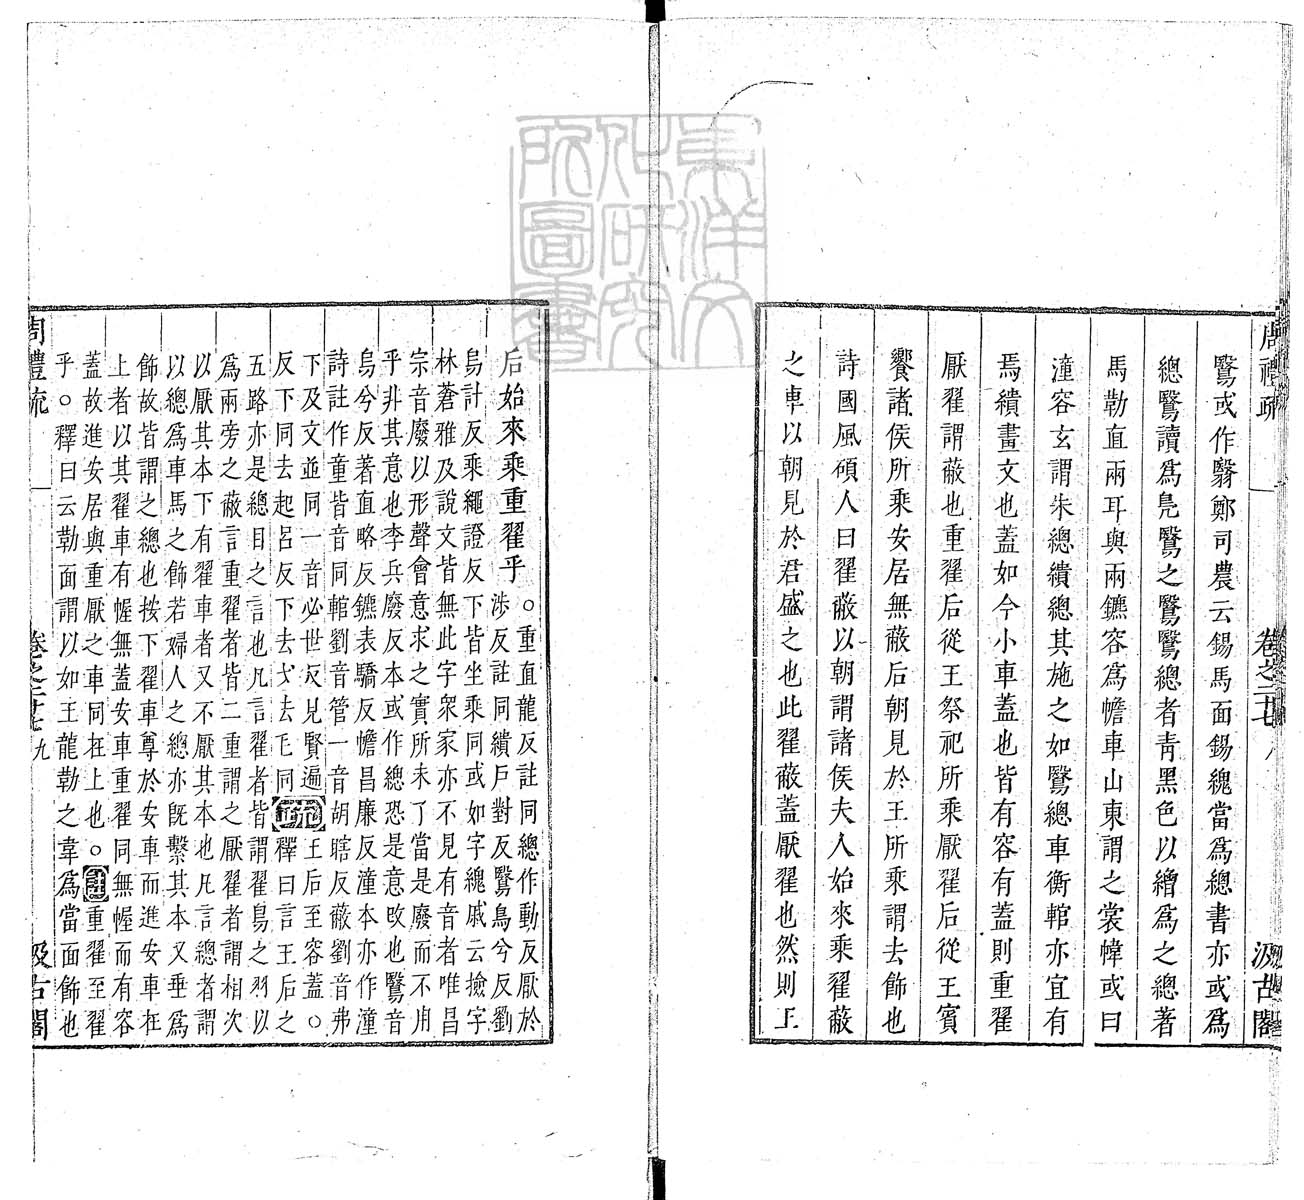 周禮疏 卷之二十七 八 汲古閣
鷖或作繄鄭司農云錫馬面錫緫當爲總書亦或爲
總鷖讀爲鳧鷖之鷖鷖總者青黑色以繒爲之總著
馬勒直兩耳與兩鑣容爲幨車山東謂之裳幃或曰
潼容玄謂朱總繢總其施之如鷖總車衡輨亦宜有
焉繢畫文也蓋如今小車蓋也皆有容有蓋則重翟
厭翟謂蔽也重翟后從王祭祀所乘厭翟后從王賓
饗諸侯所乘安居無蔽后朝見於王所乘謂去飾也
詩國風碩人曰翟蔽以朝謂諸侯夫人始來乘翟蔽
之車以朝見於君盛之也此翟蔽蓋厭翟也然則王
后始來乘重翟乎
○重直龍反註同總作動反厭於
涉反註同繢戶對反鷖烏兮反劉
烏計反乘繩證反下皆坐乘同或如字緫戚云檢字
林蒼雅及說文皆無此字衆家亦不見有音者唯昌
宗音廢以形聲會意求之實所未了當是廢而不用
乎非其意也李兵廢反本或作總恐是意改也鷖音
烏兮反著直略反鑣表驕反幨昌廉反潼本亦作潼
詩註作童皆音同輨劉音管一音胡瞎反蔽劉音弗
下及文並同一音必世反見賢遍
反下同去起呂反下去戈去正同
疏
王后至容蓋○
釋曰言王后之
五路亦是總目之言也凡言翟者皆謂翟鳥之羽以
爲兩旁之蔽言重翟者皆二重謂之厭翟者謂相次
以厭其本下有翟車者又不厭其本也凡言總者謂
以總爲車馬之飾若婦人之總亦旣繫其本又垂爲
飾故皆謂之總也按下翟車尊於安車而進安車在
上者以其翟車有幄無蓋安車重翟同無幄而有容
蓋故進安居與重厭之車同在上也○註重翟至翟
乎○釋曰云勒面謂以如王龍勒之韋爲當面飾也
周禮疏 卷之二十七 九 汲古閣
東洋文化研究所圖書